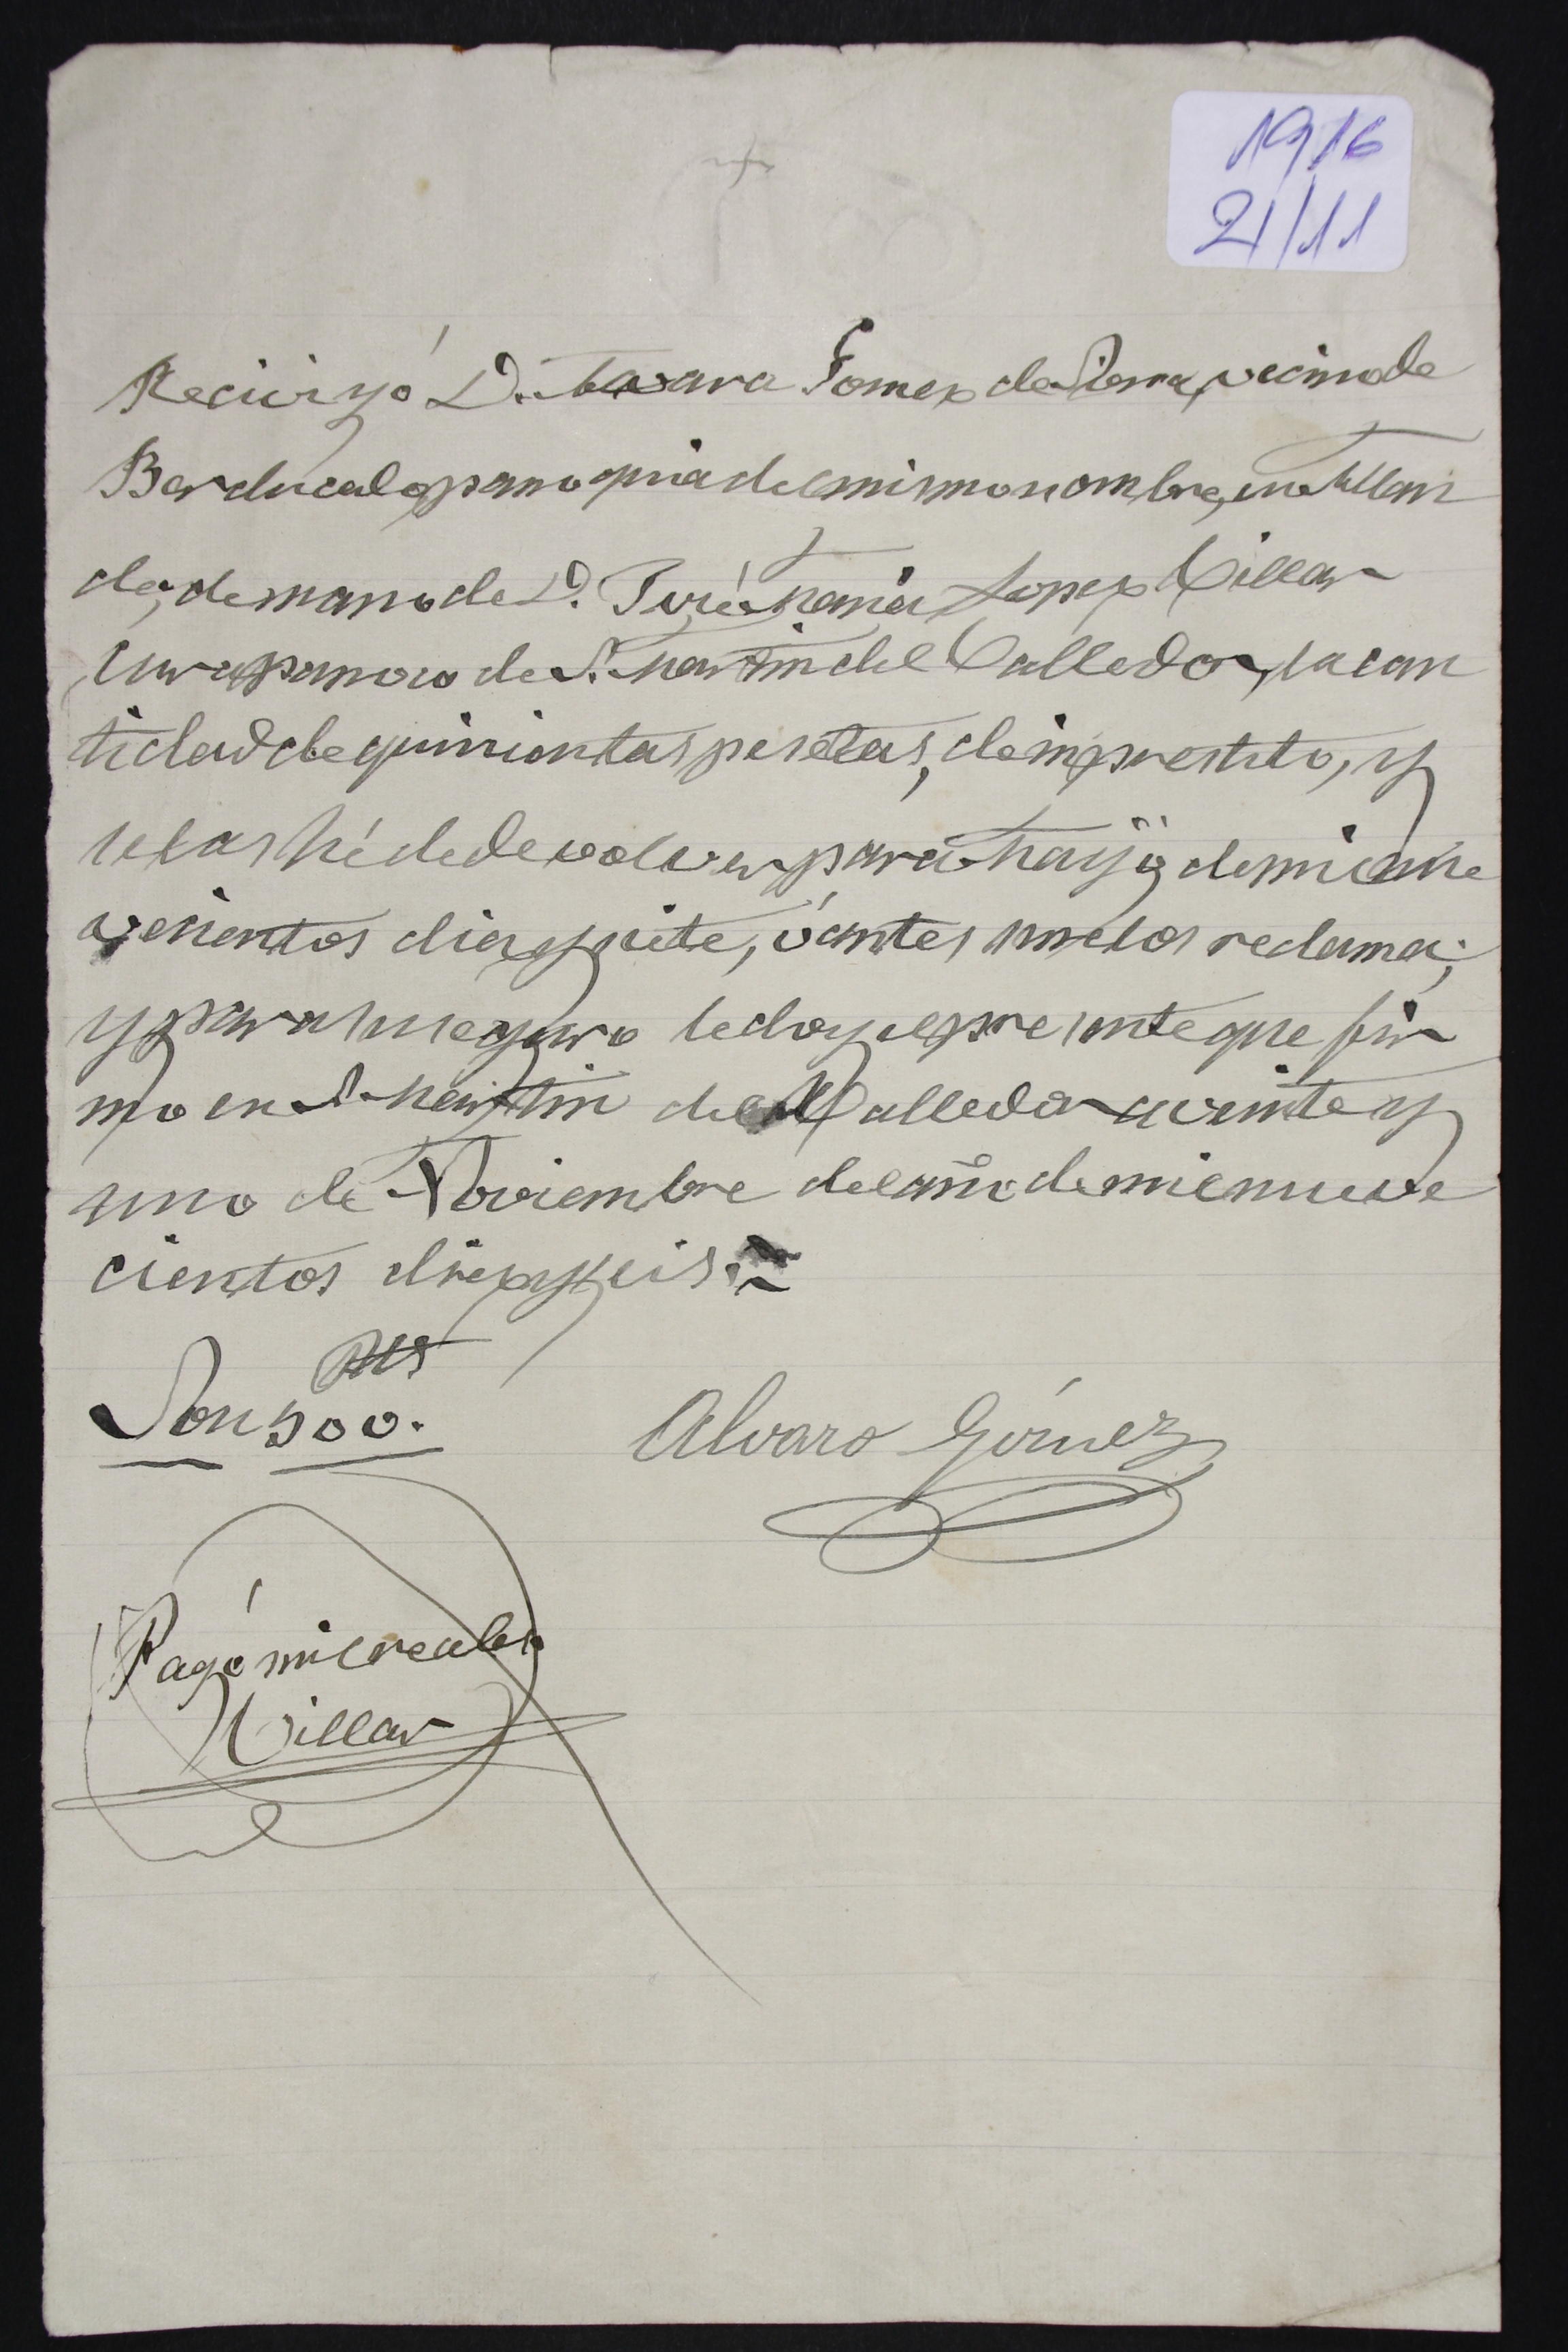 1916
21/11
Reciví yó D. Alvaro Gomez de Sierra, vecino de
Berducedo, parroquia del mismo nombre, en Allan
de, de mano de D. José Maria Lopez Villar
Cura parroco de S. Martin del Valledor, la can
tidad de quinientas pesetas, de imprestito, y
se las hé de devolver para Mayo de mil nue
vecientos diez y siete, ó antes si me los reclama;
y para su seguro le doy el presente que fir
mo en S. Martin del Valledor a veinte y
uno de Noviembre del año de mil nueve
cientos diez y seis.
Pts
Son 500.
Alvaro Gómez
Pagó mil reales
Villar